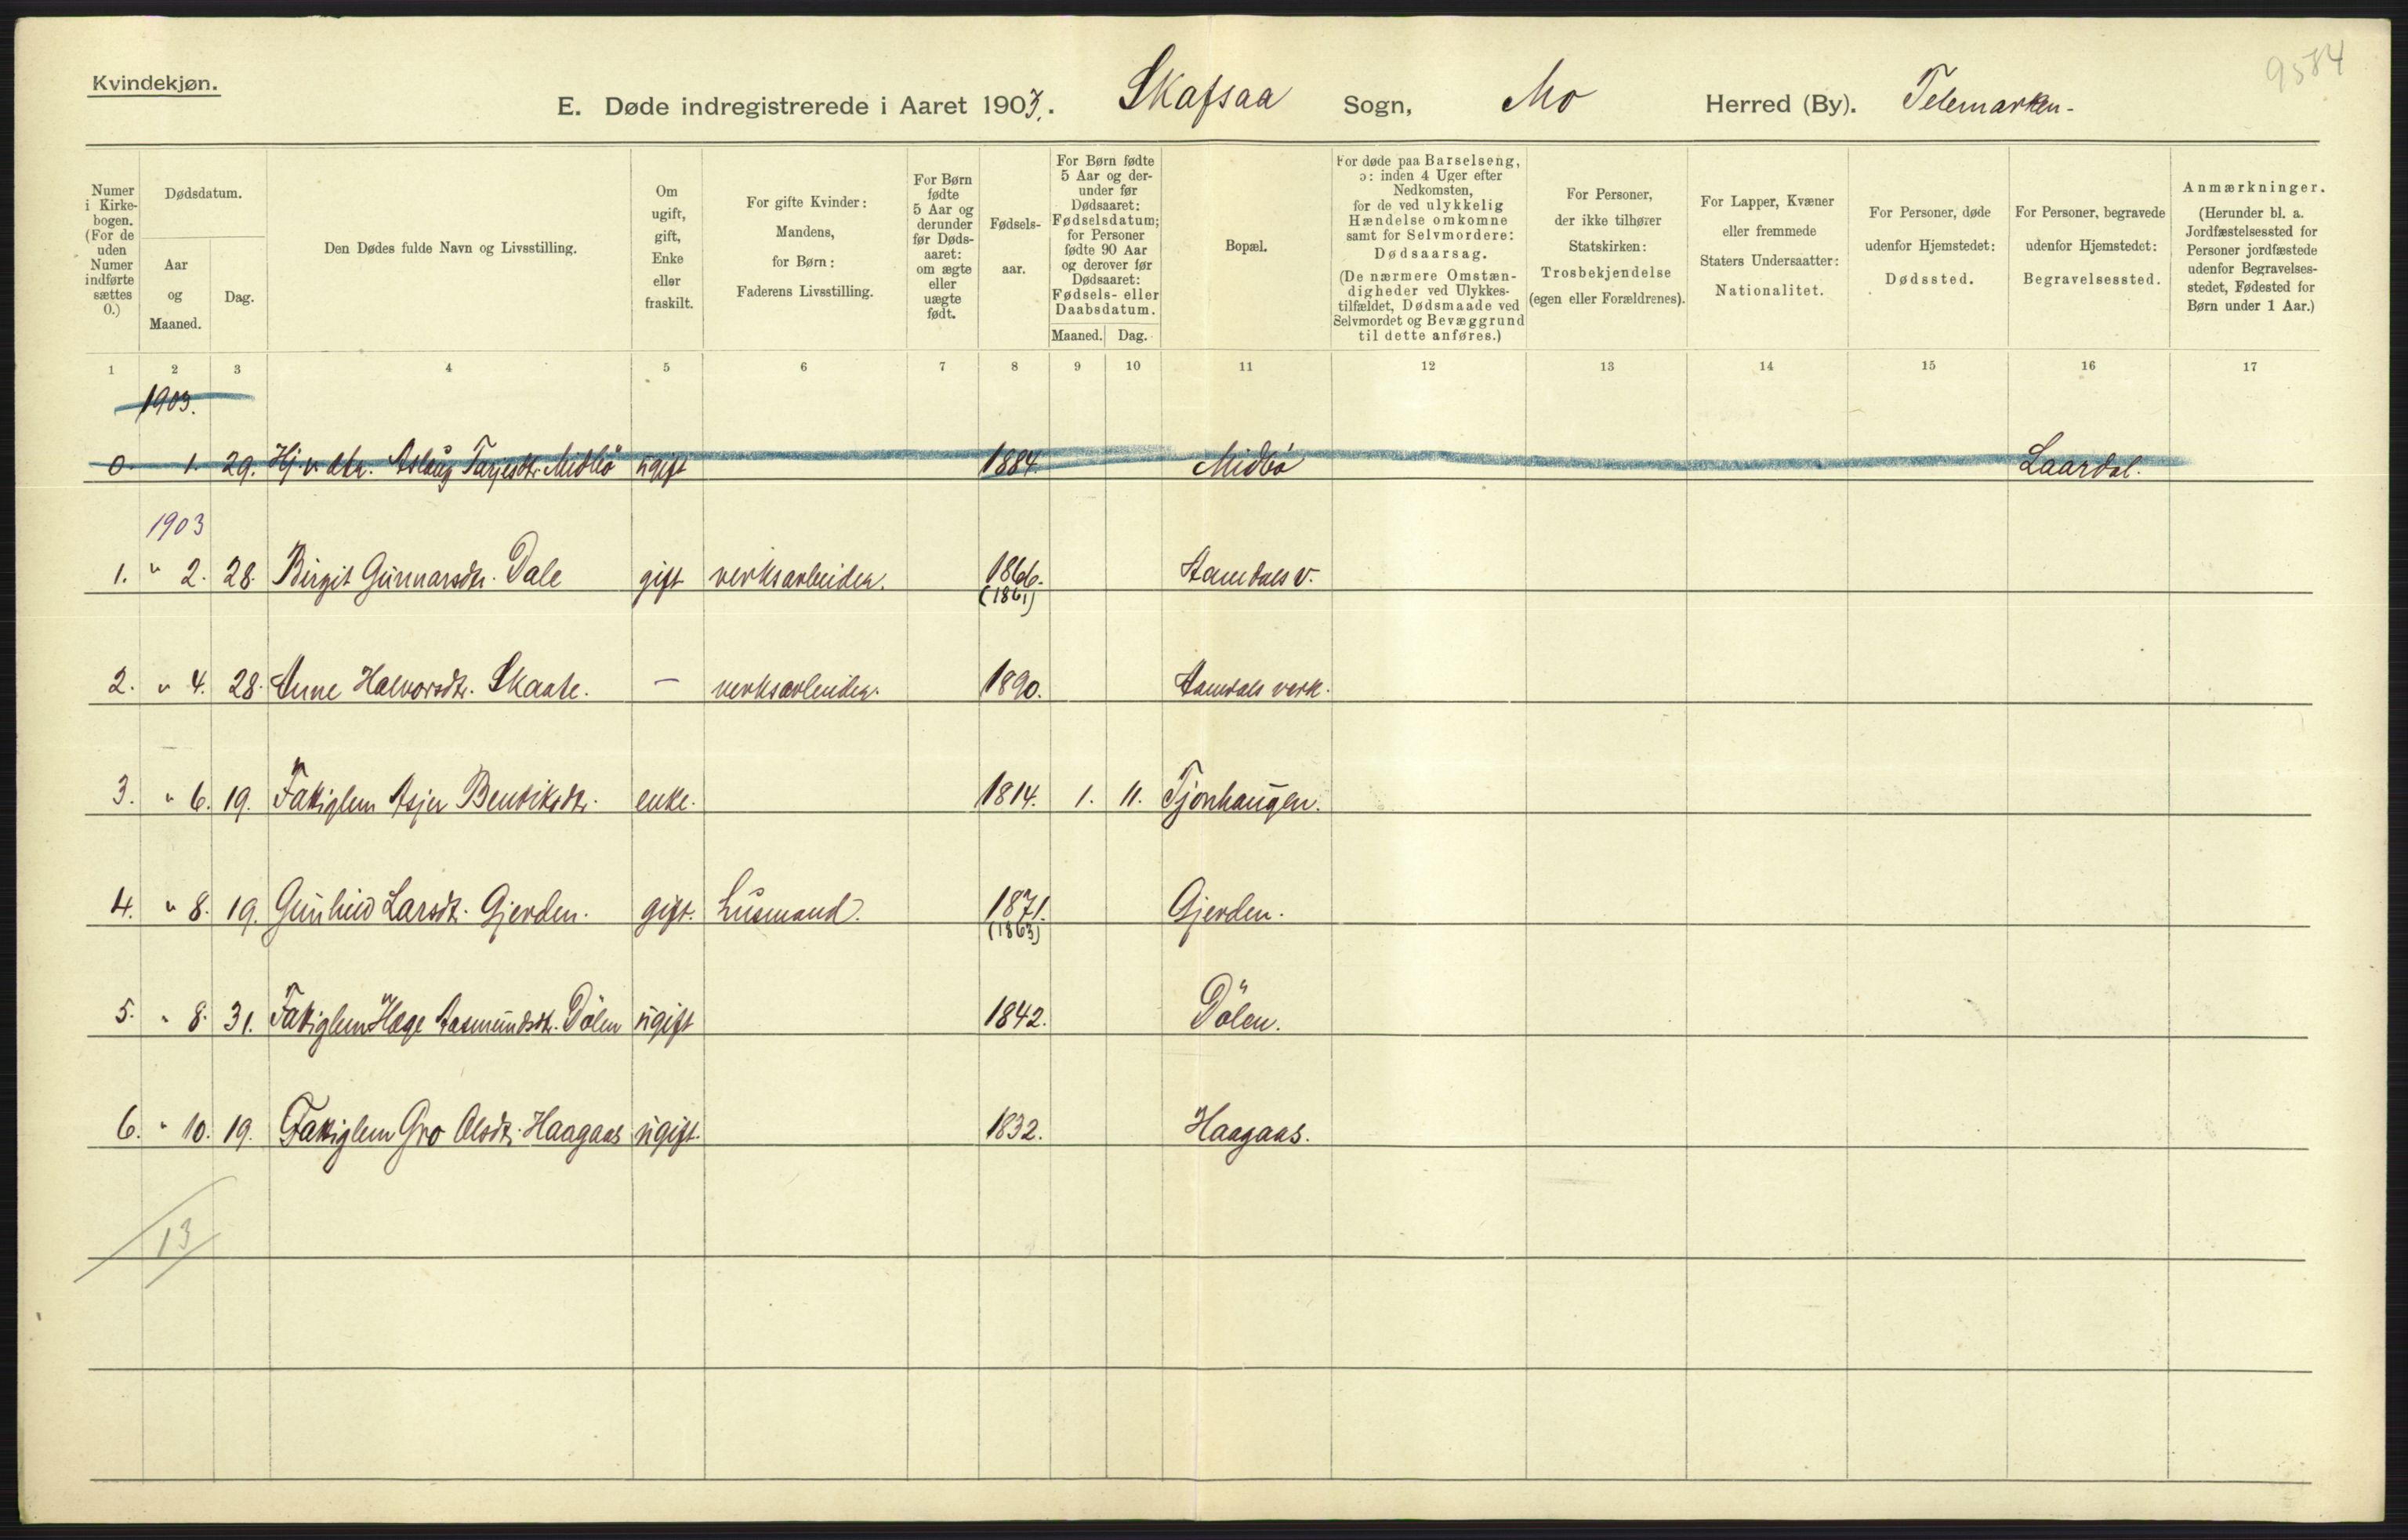 9584
Kvindekjøn.
E. Døde indregistrerede i Aaret 1903. Skafsaa Sogn, Mo Herred (By). Telemarken-
Numer
i Kirke-
bogen.
(For de
uden
Numer
indførte
sættes
0.)
Dødsdatum.
Aar
og
Maaned.
Dag.
Den Dødes fulde Navn og Livsstilling.
Om
ugift,
gift,
Enke
eller
fraskilt.
For gifte Kvinder:
Mandens,
for Børn:
Faderens Livsstilling.
For Børn
fødte
5 Aar og
derunder
før Døds-
aaret:
om ægte
eller
uægte
født.
Fødsels-
aar.
For Børn fødte
5 Aar og der-
under før
Dødsaaret:
Fødselsdatum;
for Personer
fødte 90 Aar
og derover før
Dødsaaret:
Fødsels- eller
Daabsdatum.
Maaned. Dag.
Bopæl.
For døde paa Barselseng,
ɔ: inden 4 Uger efter
Nedkomsten,
for de ved ulykkelig
Hændelse omkomne
samt for Selvmordere:
Dødsaarsag.
(De nærmere Omstæn-
digheder ved Ulykkes-
tilfældet, Dødsmaade ved
Selvmordet og Bevæggrund
til dette anføres.)
For Personer,
der ikke tilhører
Statskirken:
Trosbekjendelse
(egen eller Forældrenes).
For Lapper, Kvæner
eller fremmede
Staters Undersaatter:
Nationalitet.
For Personer, døde
udenfor Hjemstedet:
Dødssted.
For Personer, begravede
udenfor Hjemstedet:
Begravelsessted.
Anmærkninger.
(Herunder bl. a.
Jordfæstelsessted for
Personer jordfæstede
udenfor Begravelses-
stedet, Fødested for
Børn under 1 Aar.)
1 2 3 4 5 6 7 8 9 10 11 12 13 14 15 16 17
1903.
0. 1. 29. Hj. v. dtr. Aslaug Tarjesdtr. Midbö ugift 1884. Midbö Laardal.
1903
1. " 2. 28. Birgit Gunnarsdtr. Dale gift verksarbeider. 1866. Aamdals v.
(1861)
2. " 4. 28. Anne Halvorsdtr. Skaate. — verksarbeider. 1890. Aamdals verk.
3. " 6. 19. Fattiglem Asjer Bendiksdtr. enke. 1814. 1. 11. Tjønhaugen.
4. " 8. 19. Gunhild Larsdt. Gjerden. gift. husmand. 1871. Gjerden.
(1863)
5. " 8. 31. Fattiglem Hæge Aasmundsdtr. Dölen ugift 1842. Dölen.
6. " 10. 19. Fattiglem Gro Olsdtr. Haagaas ugift. 1832. Haagaas.
13